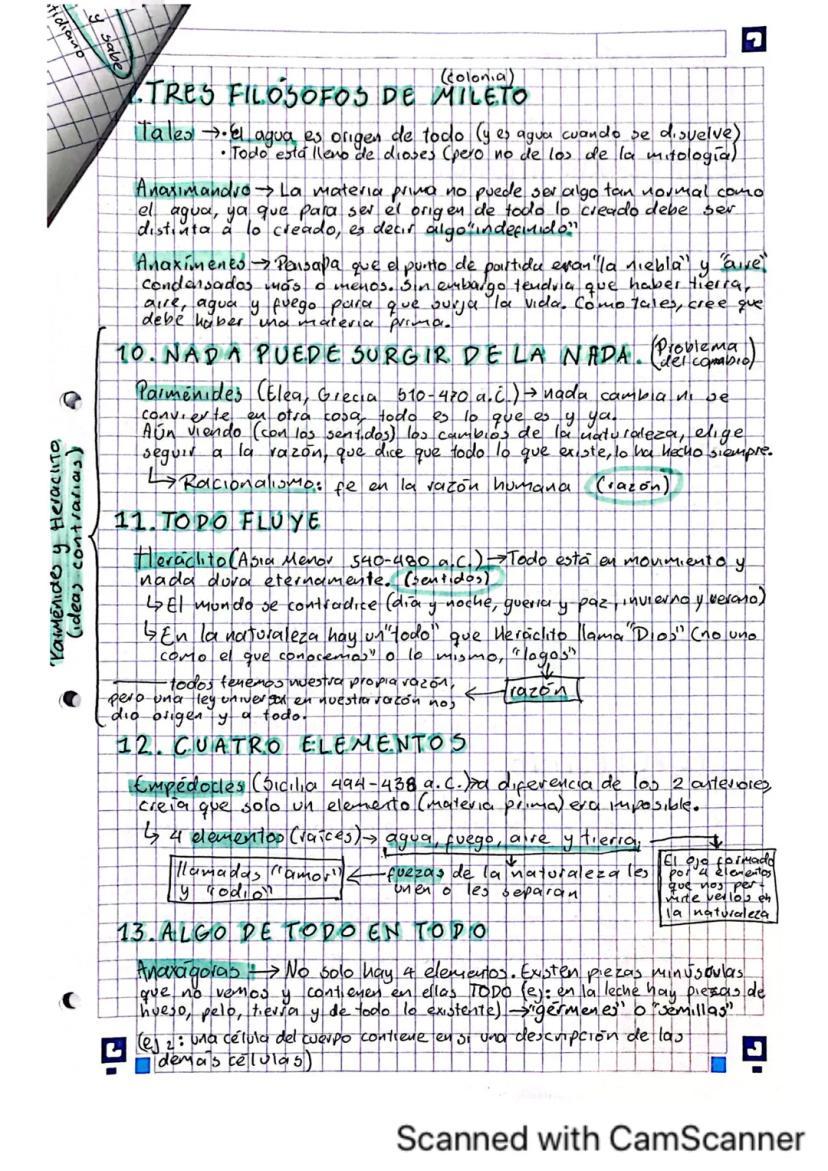 y sabe
tidiano
(colonia)
.TRES FILÓSOFOS DE MILETO
Tales →·El agua es origen de todo (y es agua cuando se disuelve)
· Todo está lleno de dioses (pero no de los de la mitología)
Anaximandro → La materia prima no puede ser algo tan normal como
el agua, ya que para ser el origen de todo lo creado debe ser
distinta a lo creado, es decir algo "indefinido"
Anaxímenes → Pensaba que el punto de partida eran "la niebla" y "aire"
condensados más o menos. Sin embargo tendria que haber tierra,
aire, agua y fuego para que surja la vida. Como tales, cree que
debe haber una materia prima.
10. NADA PUEDE SURGIR DE LA NADA. (Problema
del cambio)
Parménides (Elea, Grecia 510-470 a.C.) → nada cambia ni se
convierte en otra cosa, todo es lo que es y ya.
Aún viendo (con los sentidos) los cambios de la naturaleza, elige
seguir a la razón, que dice que todo lo que existe, lo ha hecho siempre.
↳ Racionalismo: fe en la razón humana (razón)
Parménides y Heráclito,
(ideas contrarias)
11. TODO FLUYE
Heráclito (Asia Menor 540-480 a.C.) → Todo está en movimiento y
nada dura eternamente. (sentidos)
↳ El mundo se contradice (día y noche, guerra y paz, invierno y verano)
↳ En la naturaleza hay un "todo" que Heráclito llama "Dios" (no uno
como el que conocemos" o lo mismo, "logos"
↓
todos tenemos nuestra propia razón, ← razón
pero una ley universal en nuestra razón nos
dio origen y a todo.
12. CUATRO ELEMENTOS
Empédocles (Sicilia 494-438 a.C.) → a diferencia de los 2 anteriores,
creía que solo un elemento (materia prima) era imposible.
↳ 4 elementos (raíces) → agua, fuego, aire y tierra
llamadas "amor"
y "odio"
← fuezas de la naturaleza les
unen o les separan
El ojo formado
por 4 elementos
que nos per-
mite verlos en
la naturaleza
13. ALGO DE TODO EN TODO
Anaxágoras: → No solo hay 4 elementos. Existen piezas minúsculas
que no vemos y contienen en ellas TODO (ej: en la leche hay piezas de
hueso, pelo, tierra y de todo lo existente) → "gérmenes" o "semillas"
(ej 2: una célula del cuerpo contiene en si una descripción de las
demás células)
Scanned with CamScanner